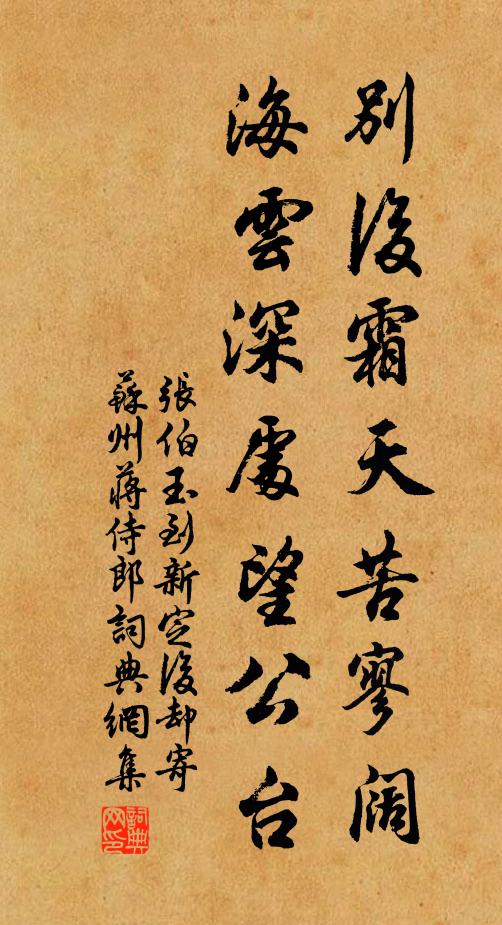 別後霜天苦寥闊
海雲深處望公台
張伯玉到新定後却寄
蘇州蔣侍郎詞典網集
詞典
网印